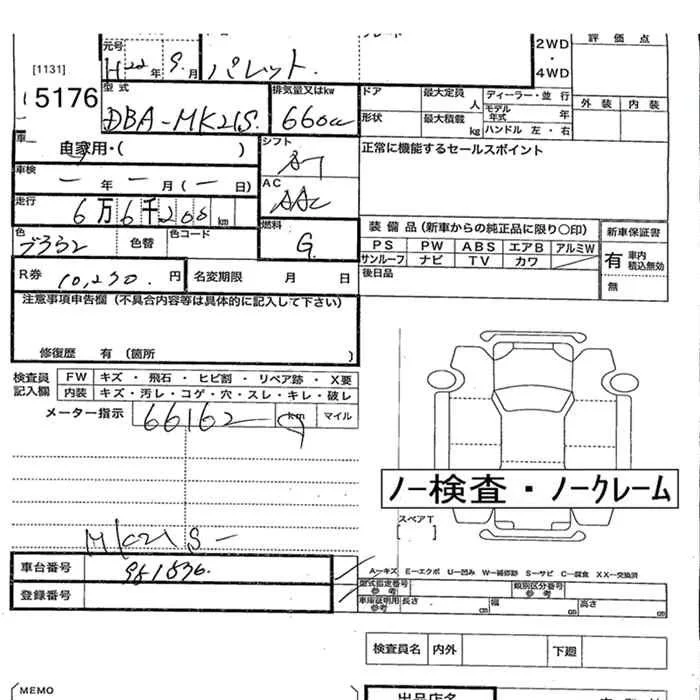 元号 H22 年 9 月 パレット. 2WD ・ 4WD 評価点
[1131]
5176
型式 DBA-MK21S. 排気量又はkw 660cc ドア 最大定員 人 ディーラー・並行 外装 内装
形状 最大積載 kg モデル年式 年 ハンドル 左・右
車 自家用・( ) シフト AT 正常に機能するセールスポイント
車検 ー 年 ー 月(ー日) AC AAC
走行 6万6千200 km
色 色替 色コード 燃料 G. 装備品(新車からの純正品に限り〇印) 新車保証書
PS PW ABS エアB アルミW 有 車内積込無効
サンルーフ ナビ TV カワ
R券 10,230. 円 名変期限 月 日 後日品 無
注意事項申告欄(不具合内容等は具体的に記入して下さい)
修復歴 有(箇所 )
検査員記入欄 FW キズ・飛石・ヒビ割・リペア跡・X要
内装 キズ・汚レ・コゲ・穴・スレ・キレ・破レ
メーター指示 66162 km マイル
ノー検査・ノークレーム
スペアT
[ ]
MK21S-
車台番号 981836.
A-キズ E-エクボ U-凹み W-補修跡 S-サビ C-腐食 XX-交換済
登録番号 型式指定番号 参考 類別区分番号 参考
車庫証明用 参考 長さ cm 幅 cm 高さ cm
検査員名 内外 下廻
MEMO 出品店名